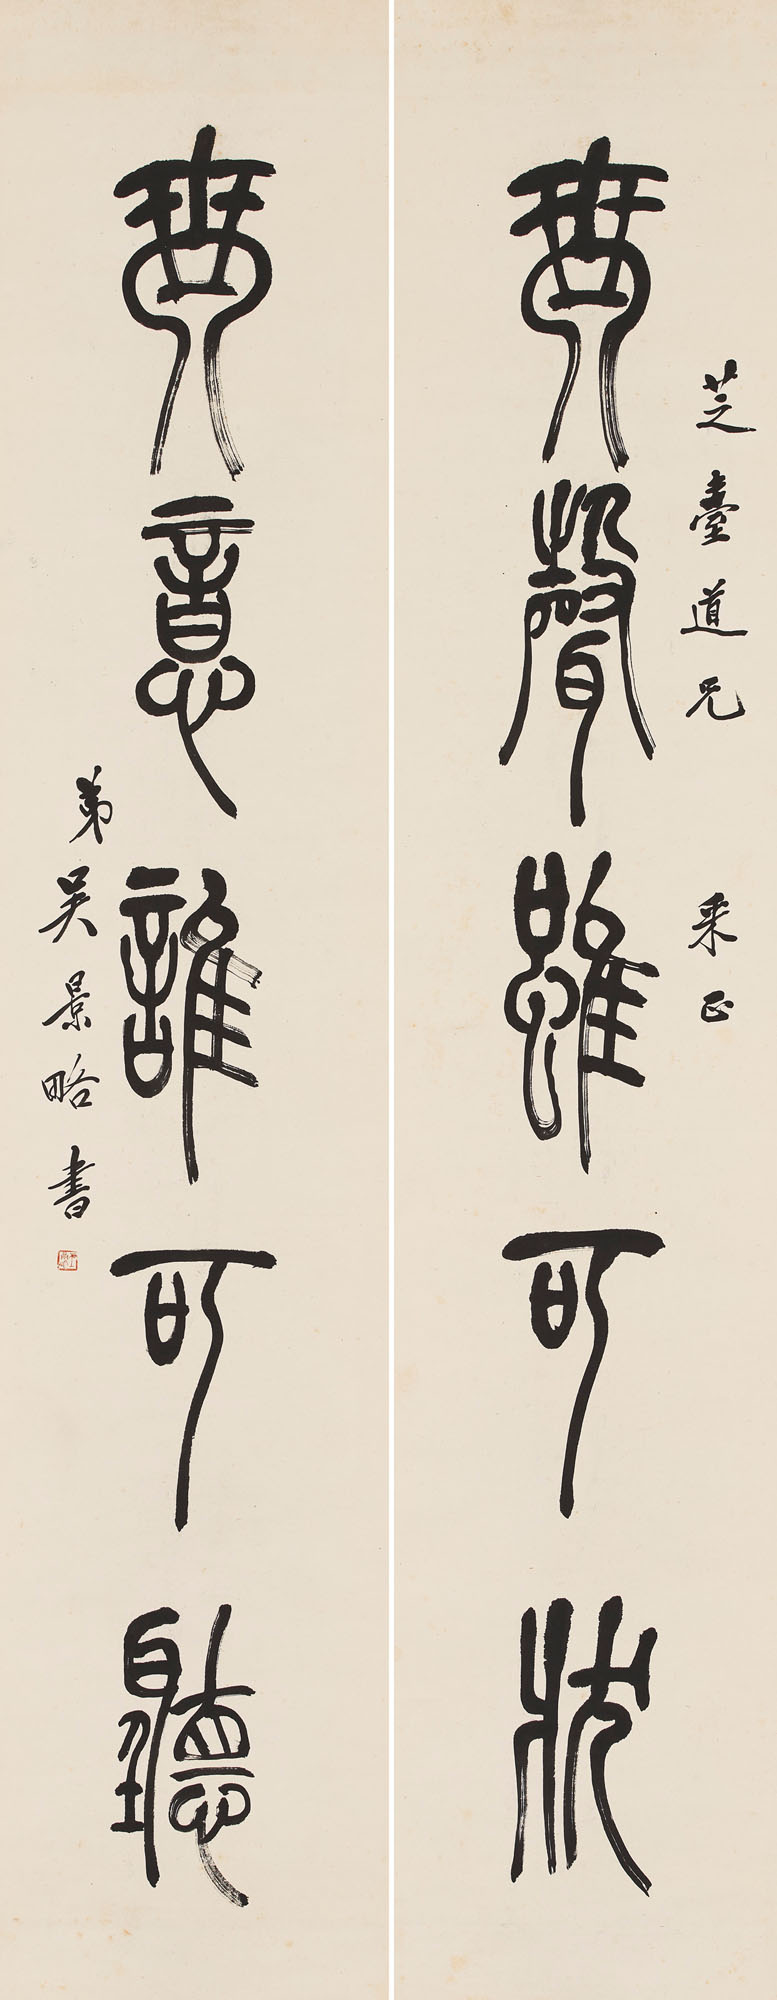 芝臺道兄 采正
琴聲雖可狀
琴意誰可聽
弟吳景略書